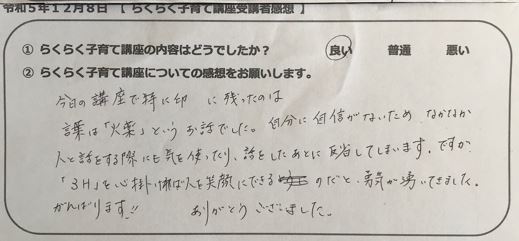 令和5年12月8日 【 らくらく子育て講座受講者感想 】
① らくらく子育て講座の内容はどうでしたか？ 良い 普通 悪い
② らくらく子育て講座についての感想をお願いします。
今日の講座で特に印 に残ったのは
言葉は「火薬」というお話でした。自分に自信がないため なかなか
人と話をする際にも気を使ったり、話をしたあとに反省してしまいます。ですが
「3H」を心掛ければ人を笑顔にできる のだと、勇気が湧いてきました。
がんばります!! ありがとうございました。